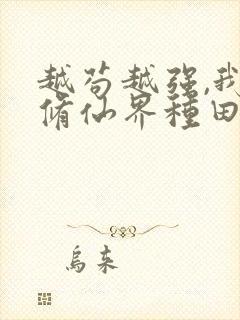 越苟越强,我
脩仙界種田
烏來